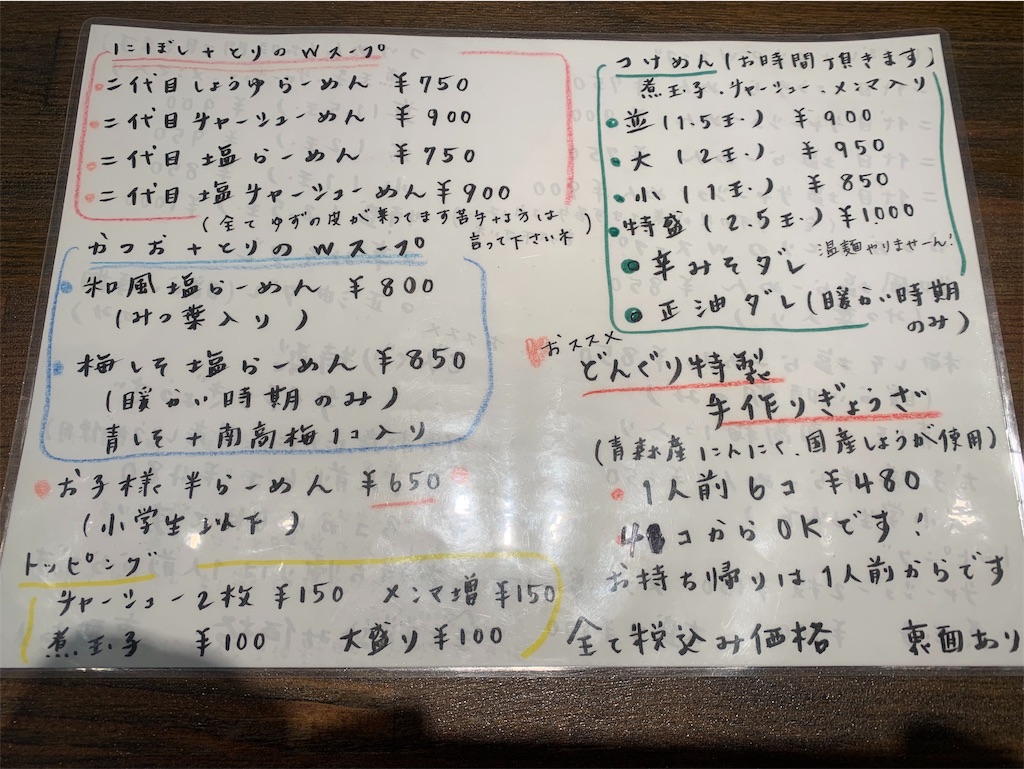 にぼし+とりのWスープ
二代目しょうゆらーめん ¥750
二代目チャーシューめん ¥900
二代目塩らーめん ¥750
二代目塩チャーシューめん ¥900
(全てゆずの皮が乗ってます苦手な方は
言って下さいネ)
かつお+とりのWスープ
和風塩らーめん ¥800
(みつ葉入り)
梅しそ塩らーめん ¥850
(暖かい時期のみ)
青しそ+南高梅1コ入り
お子様半らーめん ¥650
(小学生以下)
トッピング
チャーシュー2枚 ¥150 メンマ増 ¥150
煮玉子 ¥100 大盛り ¥100
つけめん(お時間頂きます)
煮玉子、チャーシュー、メンマ入り
並(1.5玉) ¥900
大(2玉) ¥950
小(1玉) ¥850
特盛(2.5玉) ¥1.000
温麺やりませーん!
辛みそダレ
正油ダレ(暖かい時期
のみ)
おススメ
どんぐり特製
手作りぎょうざ
(青森産にんにく、国産しょうが使用)
1人前6コ ¥480
4コからOKです!
お持ち帰りは1人前からです
全て税込み価格 裏面あり